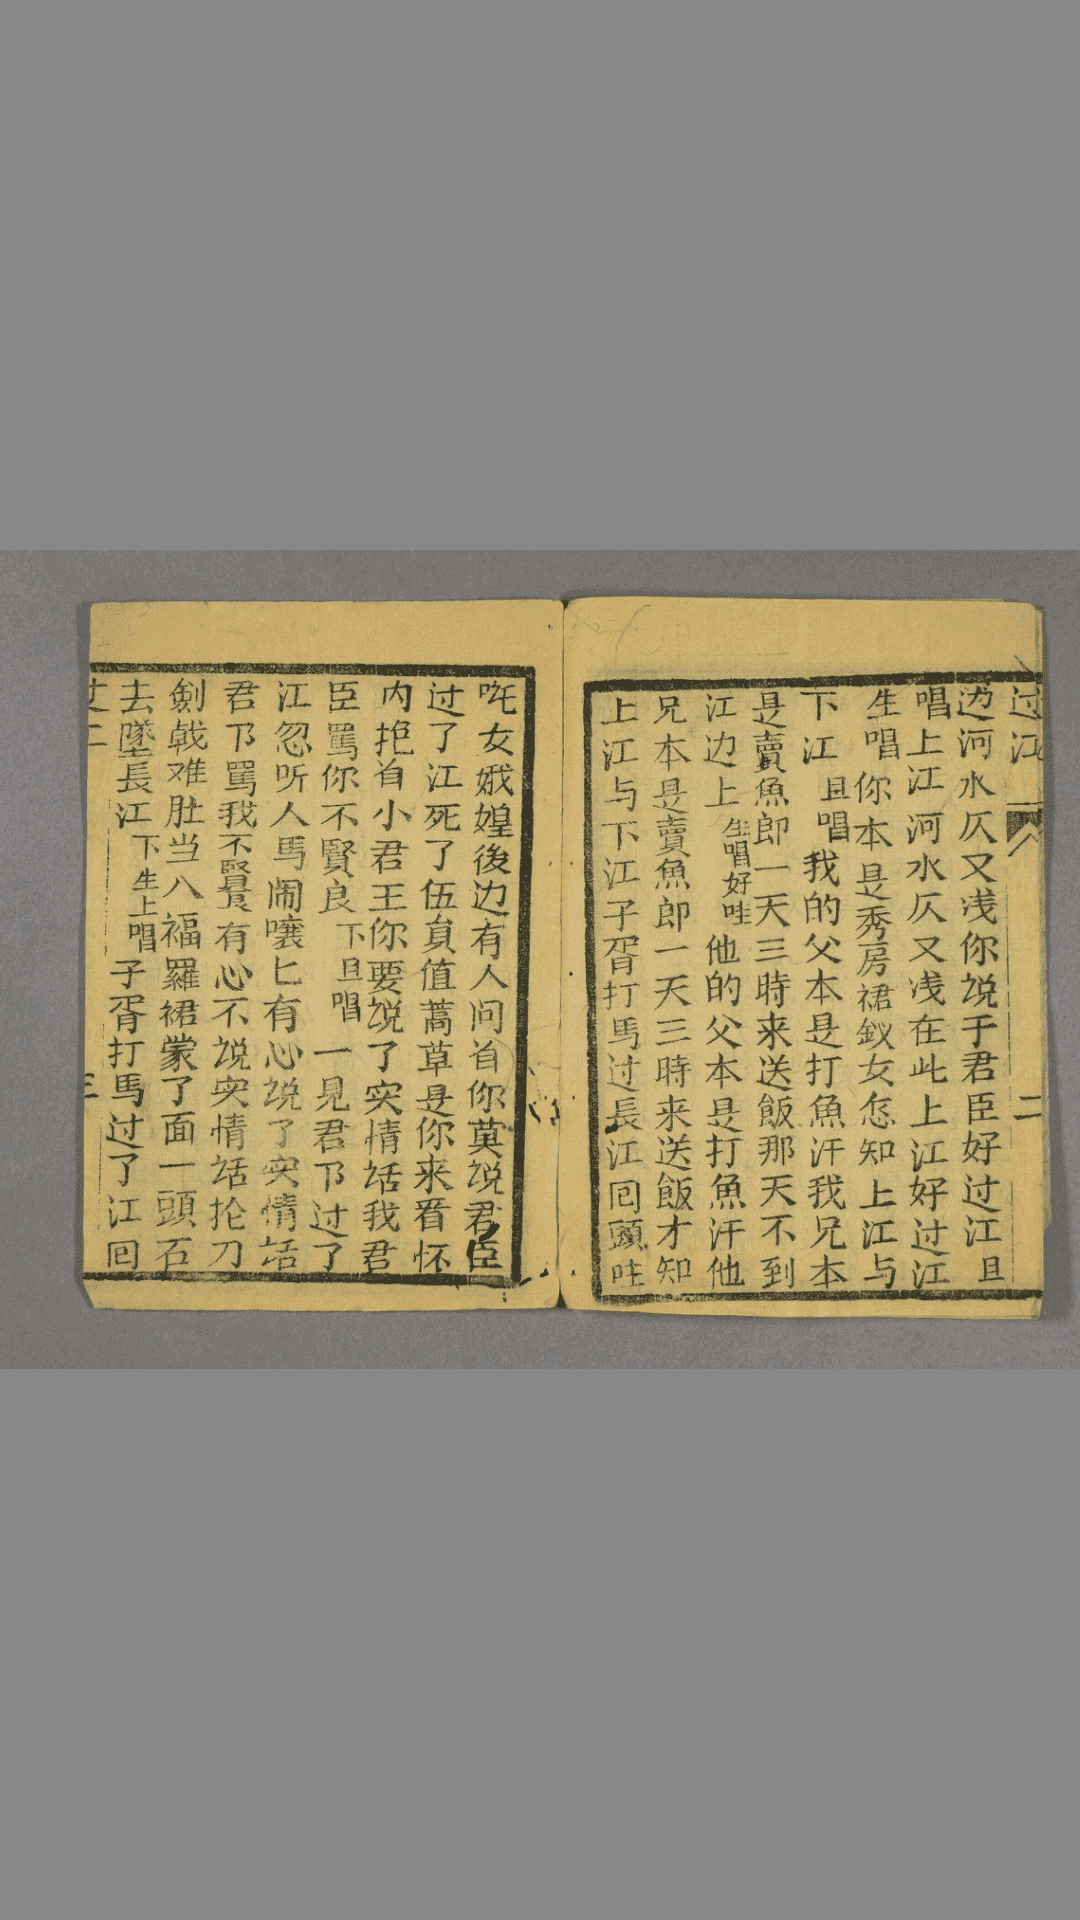 过江 二
边河水仄又浅你说于君臣好过江旦
唱上江河水仄又浅在此上江好过江
生唱你本是秀房裙釵女怎知上江与
下江旦唱我的父本是打魚汗我兄本
是賣魚郎一天三時来送飯那天不到
江边上生唱好哇他的父本是打魚汗他
兄本是賣魚郎一天三時来送飯才知
上江与下江子胥打馬过長江囘頭哇
吒女娥媓後边有人问首你莫说君臣
过了江死了伍員值蒿草是你来看怀
内抱首小君王你要说了实情话我君
臣罵你不賢良下旦唱一見君卩过了
江忽听人馬闹嚷匕有心说了实情话
君卩罵我不賢良有心不说实情话抡刀
劍戟难肚当八福羅裙蒙了面一頭石
去墜長江下生上唱子胥打馬过了江囘
三